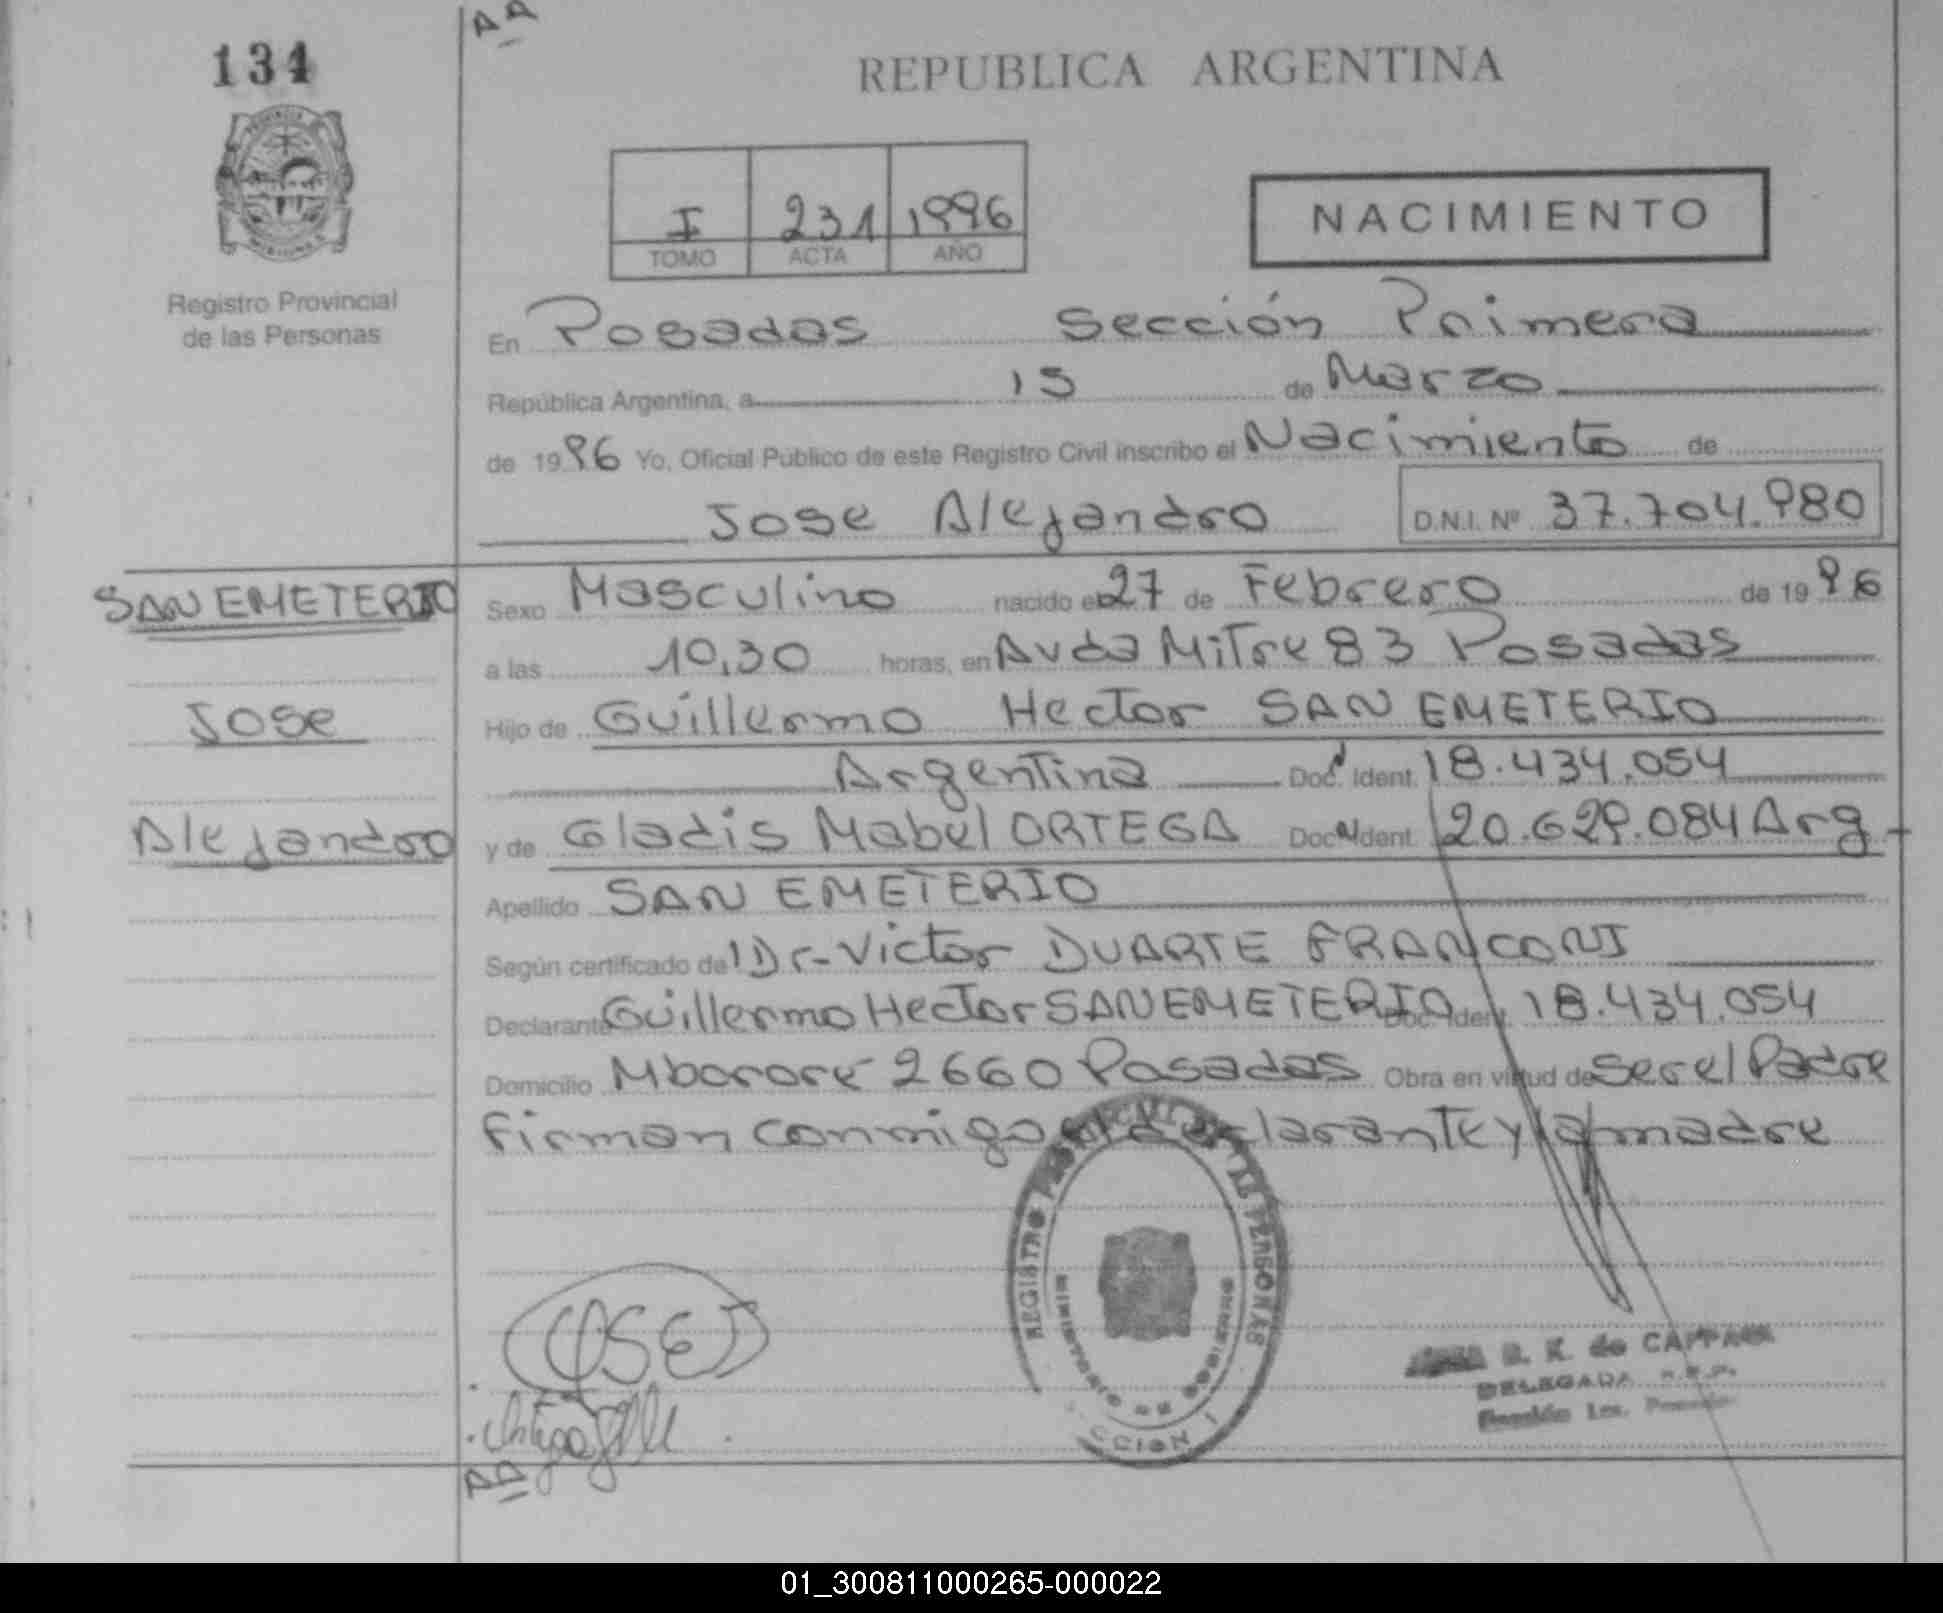 134
REPUBLICA ARGENTINA
Registro Provincial
de las Personas
I 231 1996
TOMO ACTA AÑO
NACIMIENTO
En Posadas Sección Primera
República Argentina, a 15 de Marzo
de 1996 Yo, Oficial Público de este Registro Civil inscribo el Nacimiento de
Jose Alejandro D.N.I. Nº 37.704.980
SAN EMETERIO
Jose
Alejandro
Sexo Masculino nacido el 27 de Febrero de 1996
a las 10,30 horas, en Avda Mitre 83 Posadas
Hijo de Guillermo Hector SAN EMETERIO
Argentina Doc. Ident. 18.434.054
y de Gladis Mabel ORTEGA Doc. Ident. 20.629.084 Arg
Apellido SAN EMETERIO
Según certificado del Dr. Victor DUARTE FRANCONI
Declarante Guillermo Hector SAN EMETERIO Doc. Ident. 18.434.054
Domicilio Mborore 2660 Posadas Obra en virtud de ser el Padre
Firman conmigo el declarante y la madre
REGISTRO PROVINCIAL DE LAS PERSONAS
MINISTERIO DE GOBIERNO
R. K. de
DELEGADA
Sección 1ra.
01_300811000265-000022